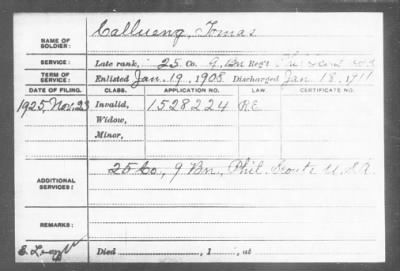 NAME OF SOLDIER: Callueng, Tomas
SERVICE: Late rank, 25 Co. 9 Bn Reg't Phil Scouts
TERM OF SERVICE: Enlisted Jan. 19, 1908 Discharged Jan 18, 1911
DATE OF FILING. CLASS. APPLICATION NO. LAW. CERTIFICATE NO.
1925, Nov. 23 Invalid, 1528224
Widow,
Minor,
ADDITIONAL SERVICES: 25 Co, 9 Bn, Phil. Scouts U.S.A.
REMARKS:
Died , 1 , at